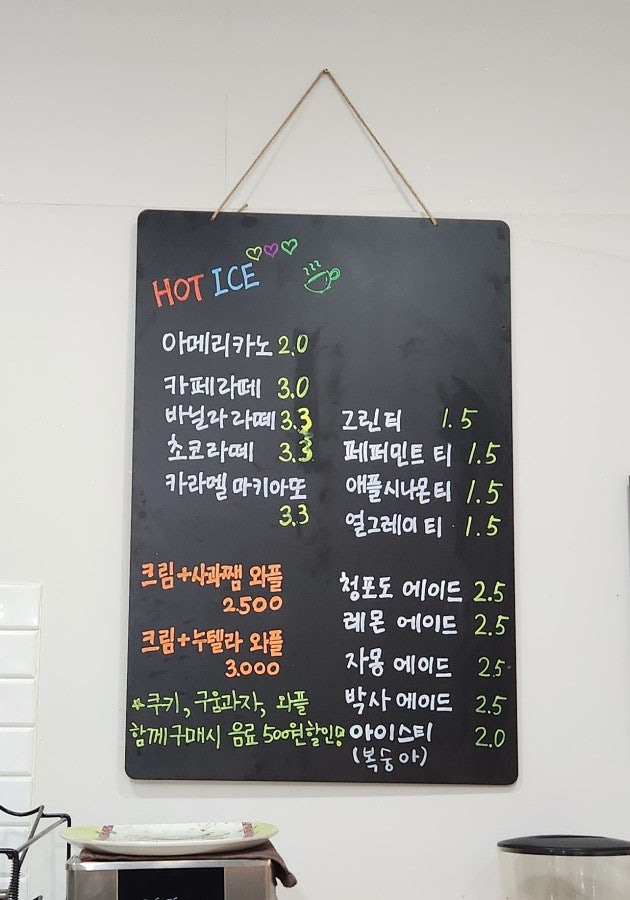 HOT ICE
아메리카노 2.0
카페라떼 3.0
바닐라라떼 3.3
초코라떼 3.3
카라멜 마키아또
3.3
크림+사과쨈 와플
2500
크림+누텔라 와플
3.000
*쿠키, 구움과자, 와플
함께구매시 음료 500원할인!
그린티 1.5
페퍼민트 티 1.5
애플시나몬티 1.5
얼그레이 티 1.5
청포도 에이드 2.5
레몬 에이드 2.5
자몽 에이드 2.5
박사 에이드 2.5
아이스티 2.0
(복숭아)